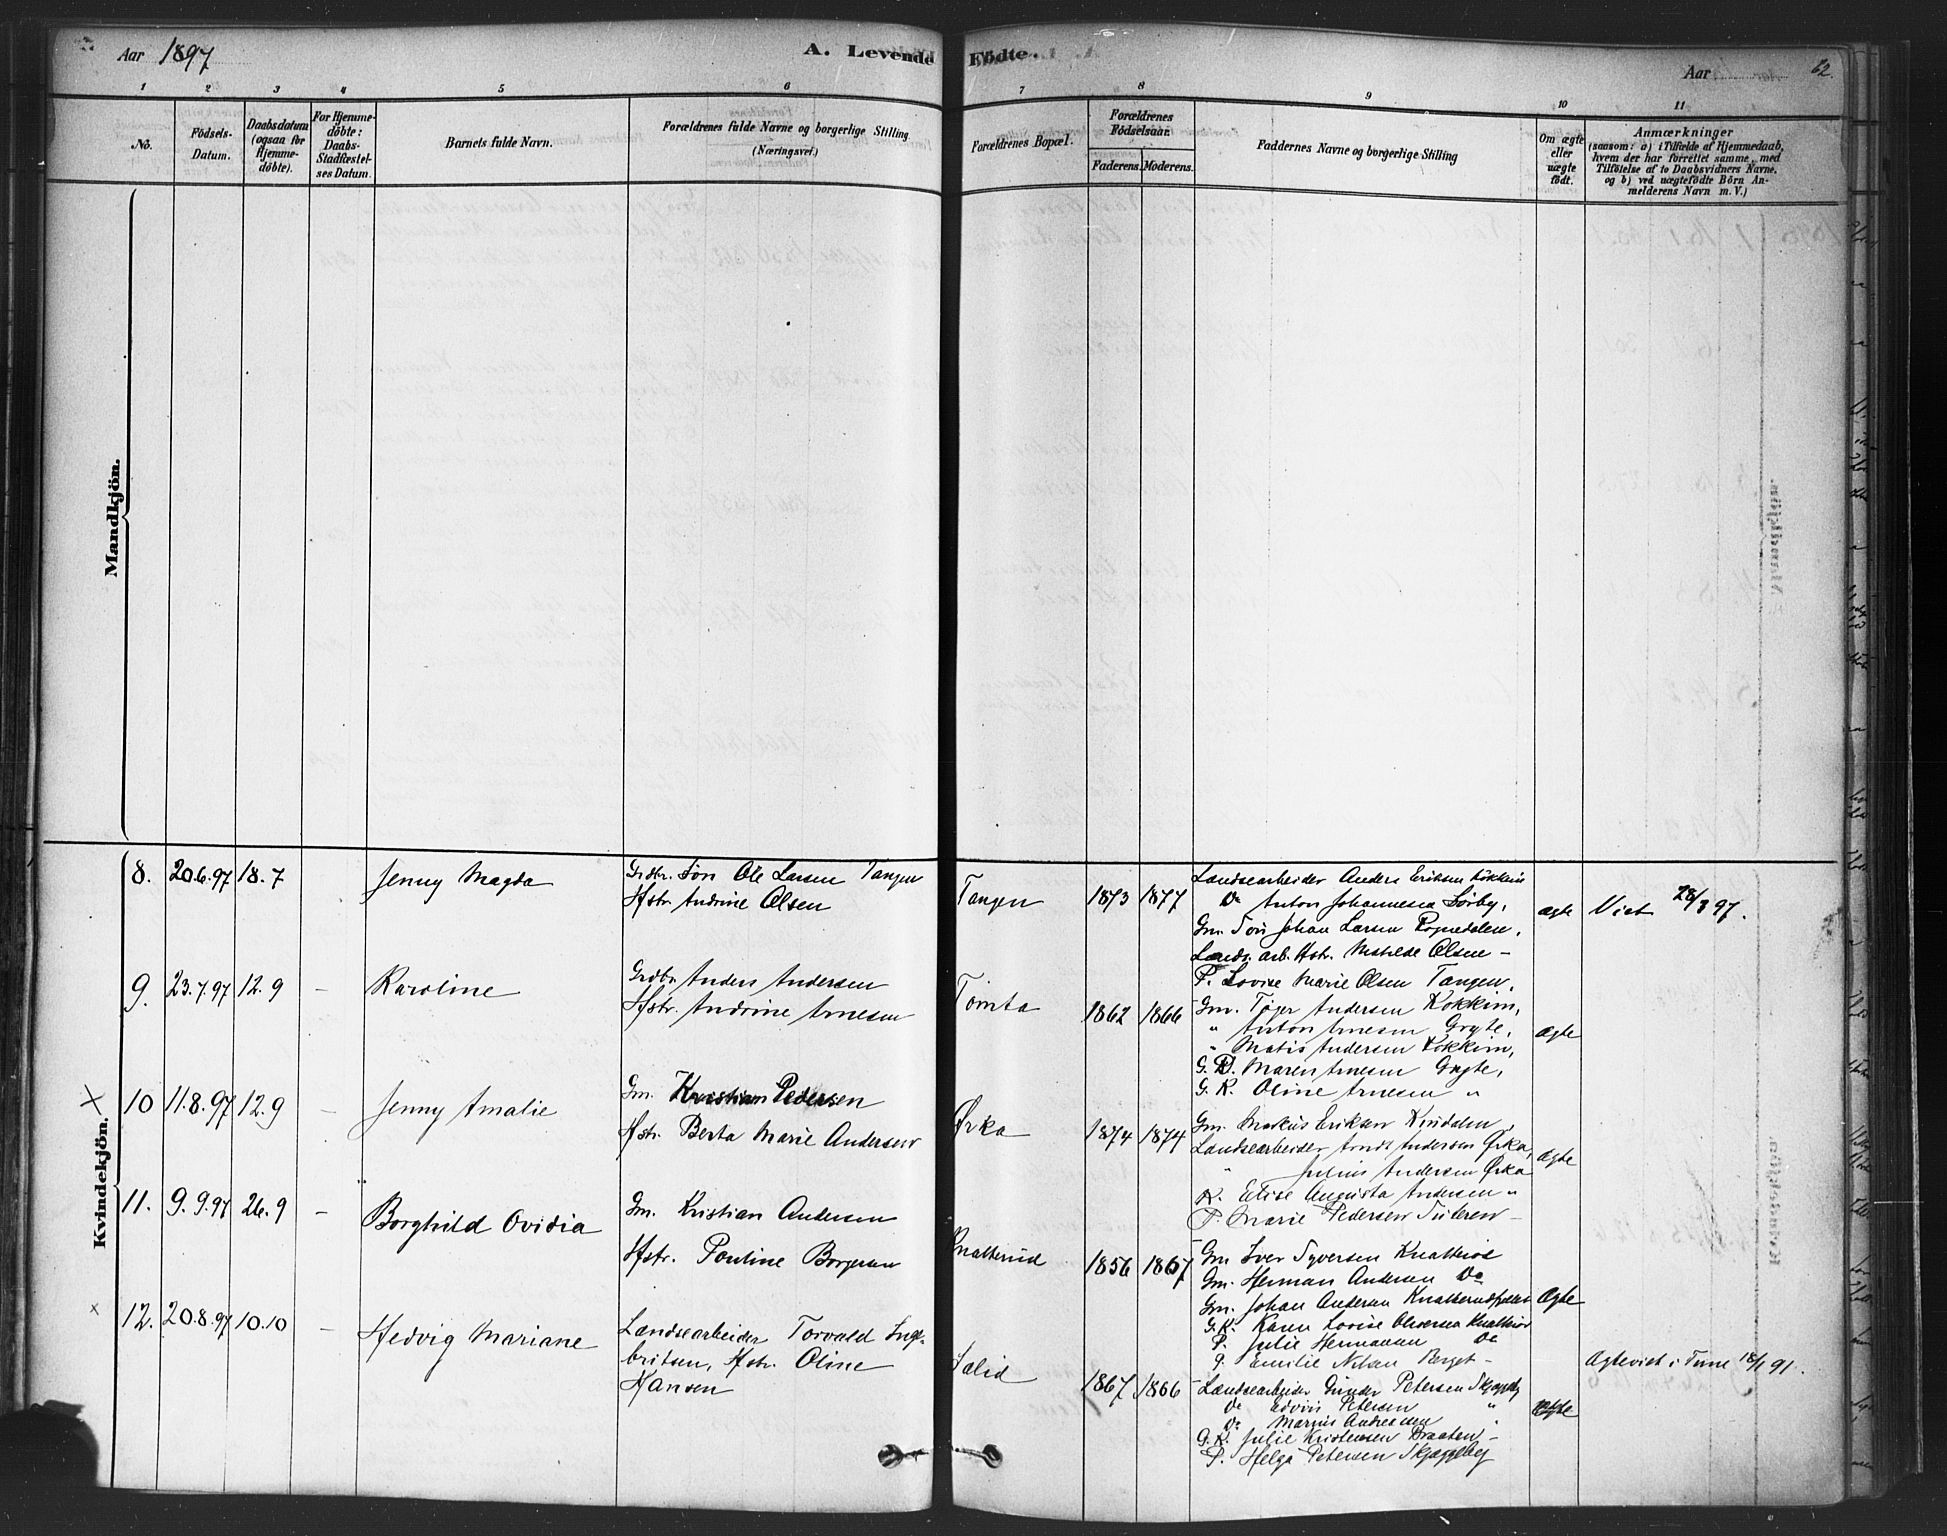 Aar 1897
A. Levende Födte.
Aar
62.
1 2 3 4 5 6 7 8 9 10 11
No.
Födsels-Datum.
Daabsdatum (ogsaa for Hjemme-döbte).
For Hjemme-döbte: Daabs-Stadfæstel-ses Datum.
Barnets fulde Navn.
Forældrenes fulde Navne og borgerlige Stilling (Næringsvei.)
Forældrenes Bopæl.
Forældrenes Födselsaar.
Faderens. Moderens.
Faddernes Navne og borgerlige Stilling
Om ægte eller uægte født.
Anmærkninger
(saasom: a) i Tilfælde af Hjemmedaab,
hvem der har forrettet samme, med
Tilföielse af to Daabsvidners Navne,
og b) ved uægtefödte Börn An-
melderens Navn m. V.)
Mandkjön.
Kvindekjön.
8. 20.6.97 18.7
Jenny Magda
Grdbr. Søn Ole Larsen Tangen
Hstr. Andrine Olsen
Tangen 1873 1877
Landsearbeider Anders Eriksen
Do Anton Johannesen Sørby,
Gm. Søn Johan Larsen
Lands. arb. Hstr. Mathilde Olsen -
P. Lovise Marie Olsen Tangen,
ægte
Viet 28/3 97.
9. 23.7.97 12.9 -
Karoline
Grdbr. Anders Andersen
Hstr. Andrine Arnesen
Tomta 1862 1866
Gm. Andersen Kokkim,
" Anton Arnesen Gryte,
" Matis Andersen Kokkim,
G. K. Maren Arnesen Gryte,
G. K. Oline Arnesen "
ægte
10 11.8.97 12.9 -
Jenny Amalie
Gm. Kristian Pedersen
Hstr. Berta Marie Andersen
Ørka 1874 1874
Gm. Markus Eriksen
Landsearbeider Andersen Ørka,
" Julius Andersen Ørka
K. Elise Augusta Andersen "
P. Marie Pedersen
ægte
11. 9.9.97 26.9 -
Borghild Ovidia
Gm. Kristian Andersen
Hstr. Pouline Borgersen
Knatterud 1856 1867
Gm Iver Syversen
Gm. Herman Andersen Do
Gm. Johan Andersen
G. K. Karen Lovise
P. Julie Hermansen Do
P. Emilie Nilsen Berget -
Ægte
12. 20.8.97 10.10 -
Hedvig Mariane
Landsearbeider Torvald Inge-
britsen, Hstr. Oline
Hansen
Solid 1867 1866
Landsearbeider Gunder Petersen Skjæggeby
Do Edvin Petersen "
Do Marius Andreassen "
G. K. Julie Kristensen Braaten -
P. Helga Petersen Skjæggeby
Ægte
Ægteviet i Tune 18/1 91.